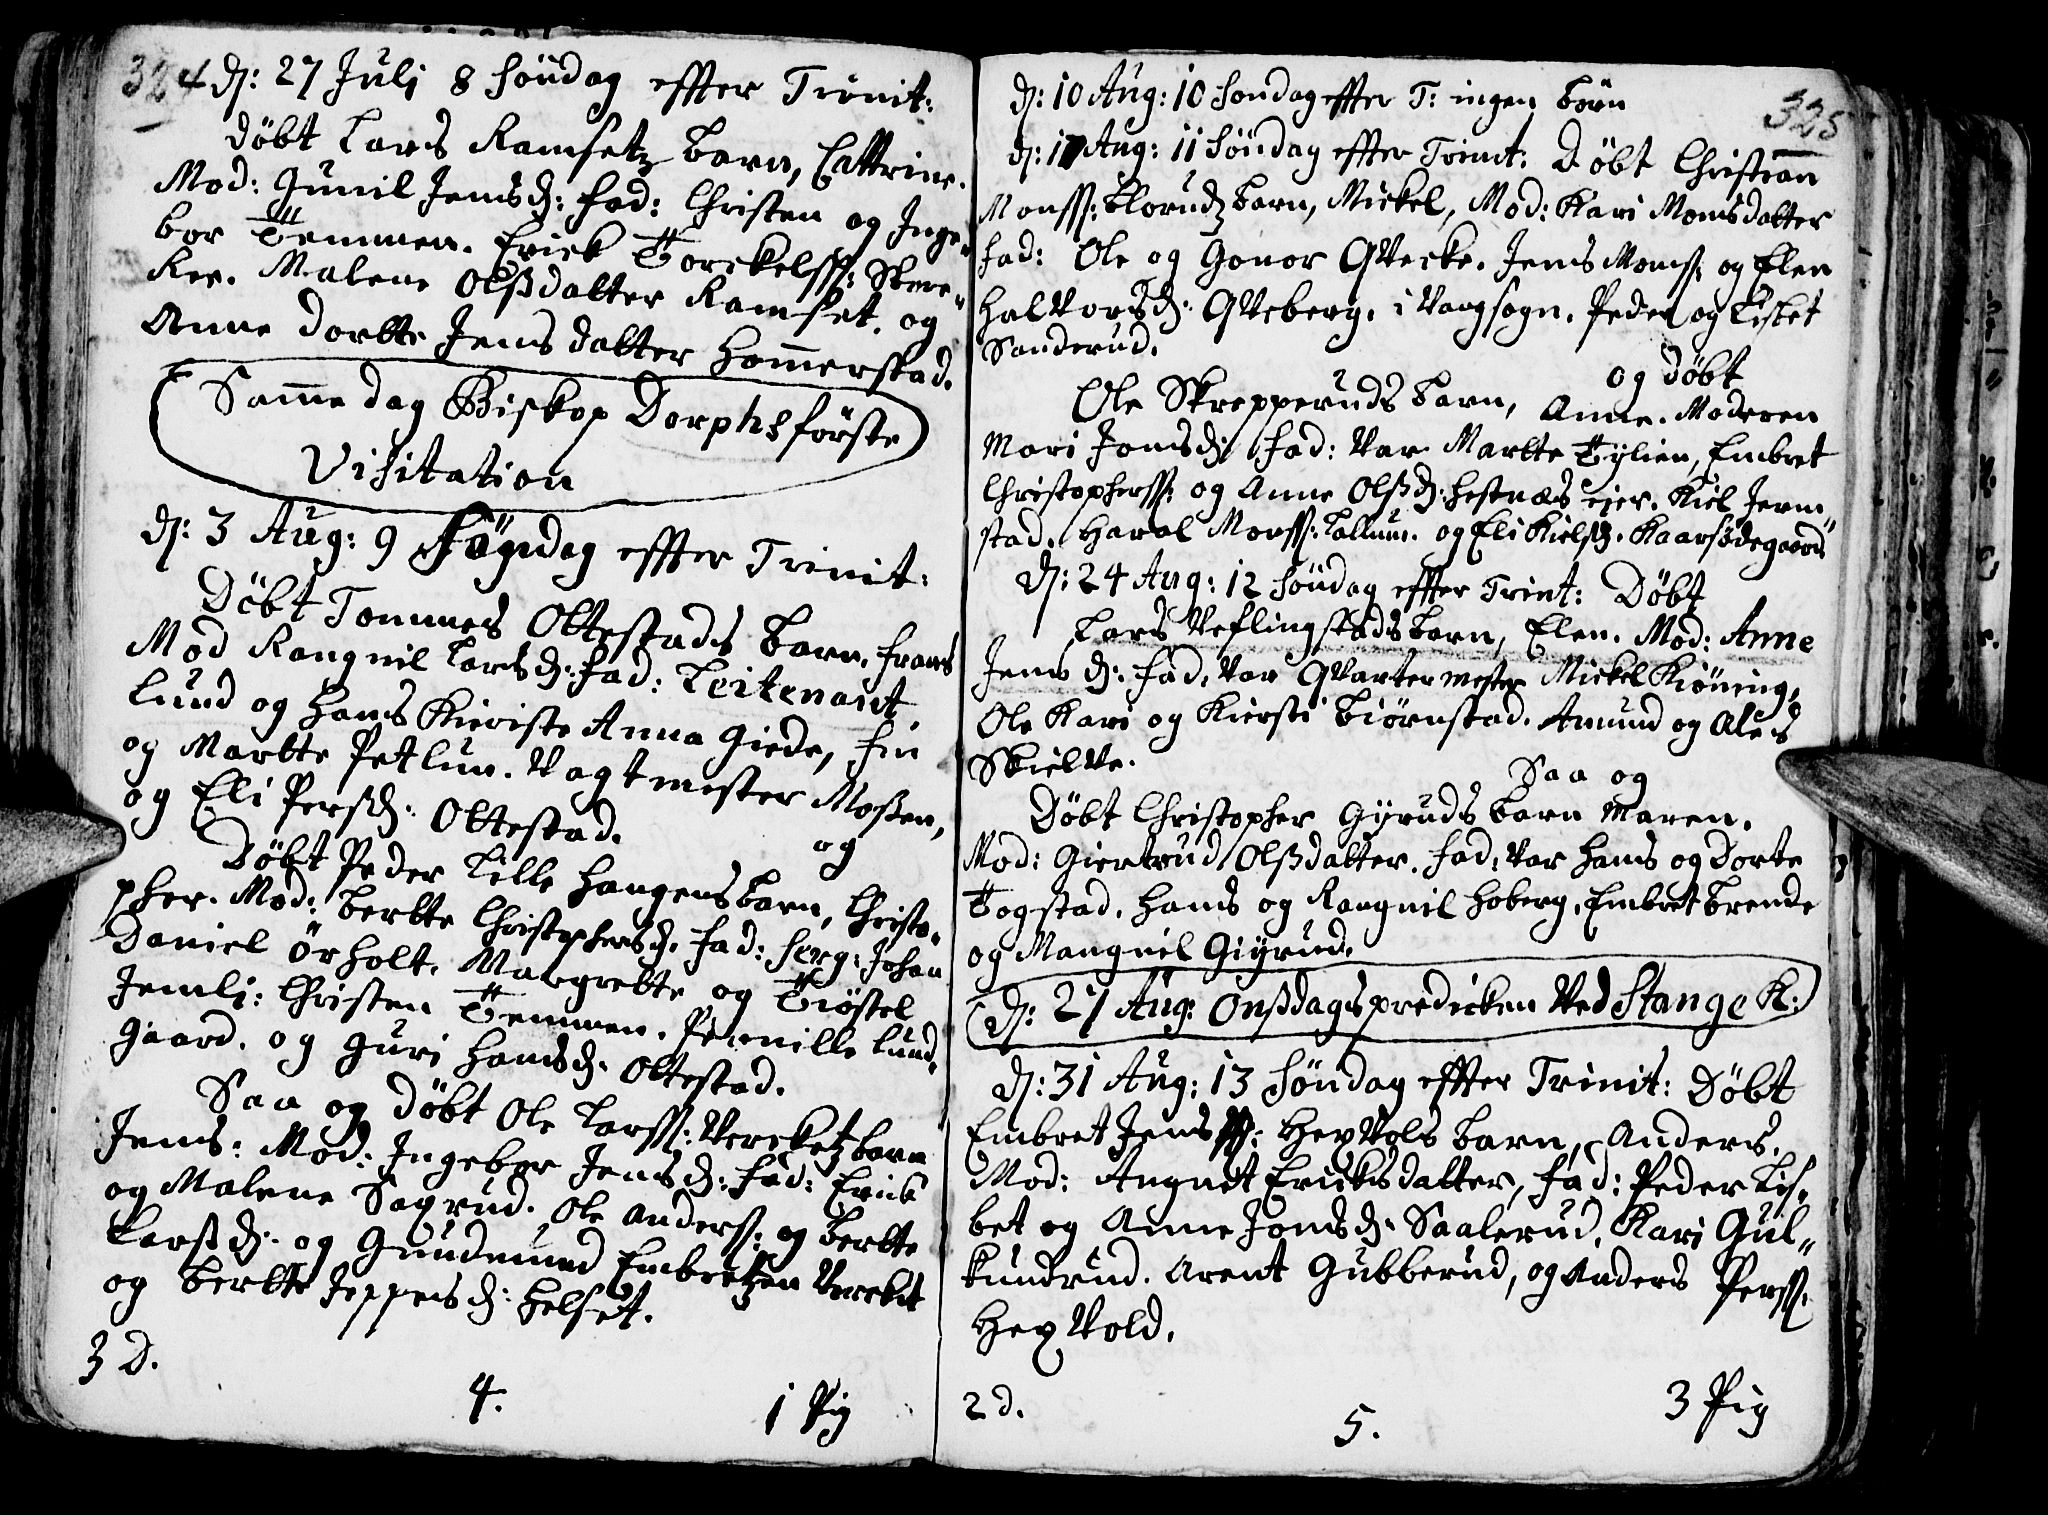 324
d: 27 Julj 8 Söndag effter Trinit:
Döbt Lars Ramsetz barn, Cattrine.
Mod: Gunil Jensd: fad: Christen og Inge-
bor Temmen. Erick Torckelss: Skere-
Ree. Malene Olsdatter Ramset. og
Anne Dortte Jensdatter Hommerstad.
Samme dag Biskop Dorphs förste
Visitation
d: 3 Aug: 9 Söndag effter Trinit:
Döbt Tommes Ottestads barn, frans
Mod Rangnil Larsd: fad: Leitenant
Lund og Hans Kieriste Anna Giede, Fin
og Martte Petlun. Vagtmester Moßen,
og Eli Persd: Ottestad.
og
Döbt Peder Lille Haugens barn, Christo-
pher. Mod: bertte Christophersd. fad: Serg: Johan
Daniel Örholt. Margrette og Tiöstel
Jemli: Christen Temmen. Pernille Lund-
gaard. og Guri Hansd: Ottestad.
Saa og Döbt Ole Larss: Vercketz barn
Jens: Mod: Ingebor Jensd: fad: Erick
og Malene Sagrud. Ole Anderss: og bertte
Larsd: og Gundmund Embretzen Verckit
og bertte Jeppesd: Helset.
3 D.
4.
1 Pig
325
d: 10 Aug: 10 Söndag effter T: ingen börn
d: 17 Aug: 11 Söndag effter Trinit: Döbt Christian
Monss: Blorudz barn, Mickel, Mod: Kari Monsdatter
fad: Ole og Gonor Qvecke. Jens Monss: og Elen
Halvorsd: Qveberg. i Vangsogn. Peder og Lisbet
Sanderud.
og döbt
Ole Skrepperuds barn, Anne. Moderen
Mari Jonsd: fad: var Martte Tylien, Embret
Christopherss: og Anne Olsd: Hestnæs eier. Kiel Jerm-
stad. Haral Monss: Tallum. og Eli Kielsd. Kaarsödegaard
d: 24 Aug: 12 Söndag effter Trint: Döbt
Lars Veflingstads barn, Elen. Mod: Anne
Jensd: fad. var Qvartermester Mickel Kiöning,
Ole Kari og Kiersti Biörnstad. Amund og Ales
Skielve.
Saa og
Döbt Christopher Gyruds barn Maren.
Mod: Giertrud Olsdatter. fad: var Hans og Dorte
Togstad. Hans og Rangnil Hoberg. Embret brende
og Mangnil Giyrud.
d: 27 Aug: Onßdags predicken ved Stange K:
d: 31 Aug: 13 Söndag effter Trinit: Döbt
Embret Jensss: Hexvols barn, Anders.
Mod: Angnet Ericksdatter, fad: Peder Lis-
bet og Anne Jonsd: Saalerud. Kari Gul-
kundrud. Arent Gubberud, og Anders Perss:
Hexvold.
2 d.
5.
3 Pig